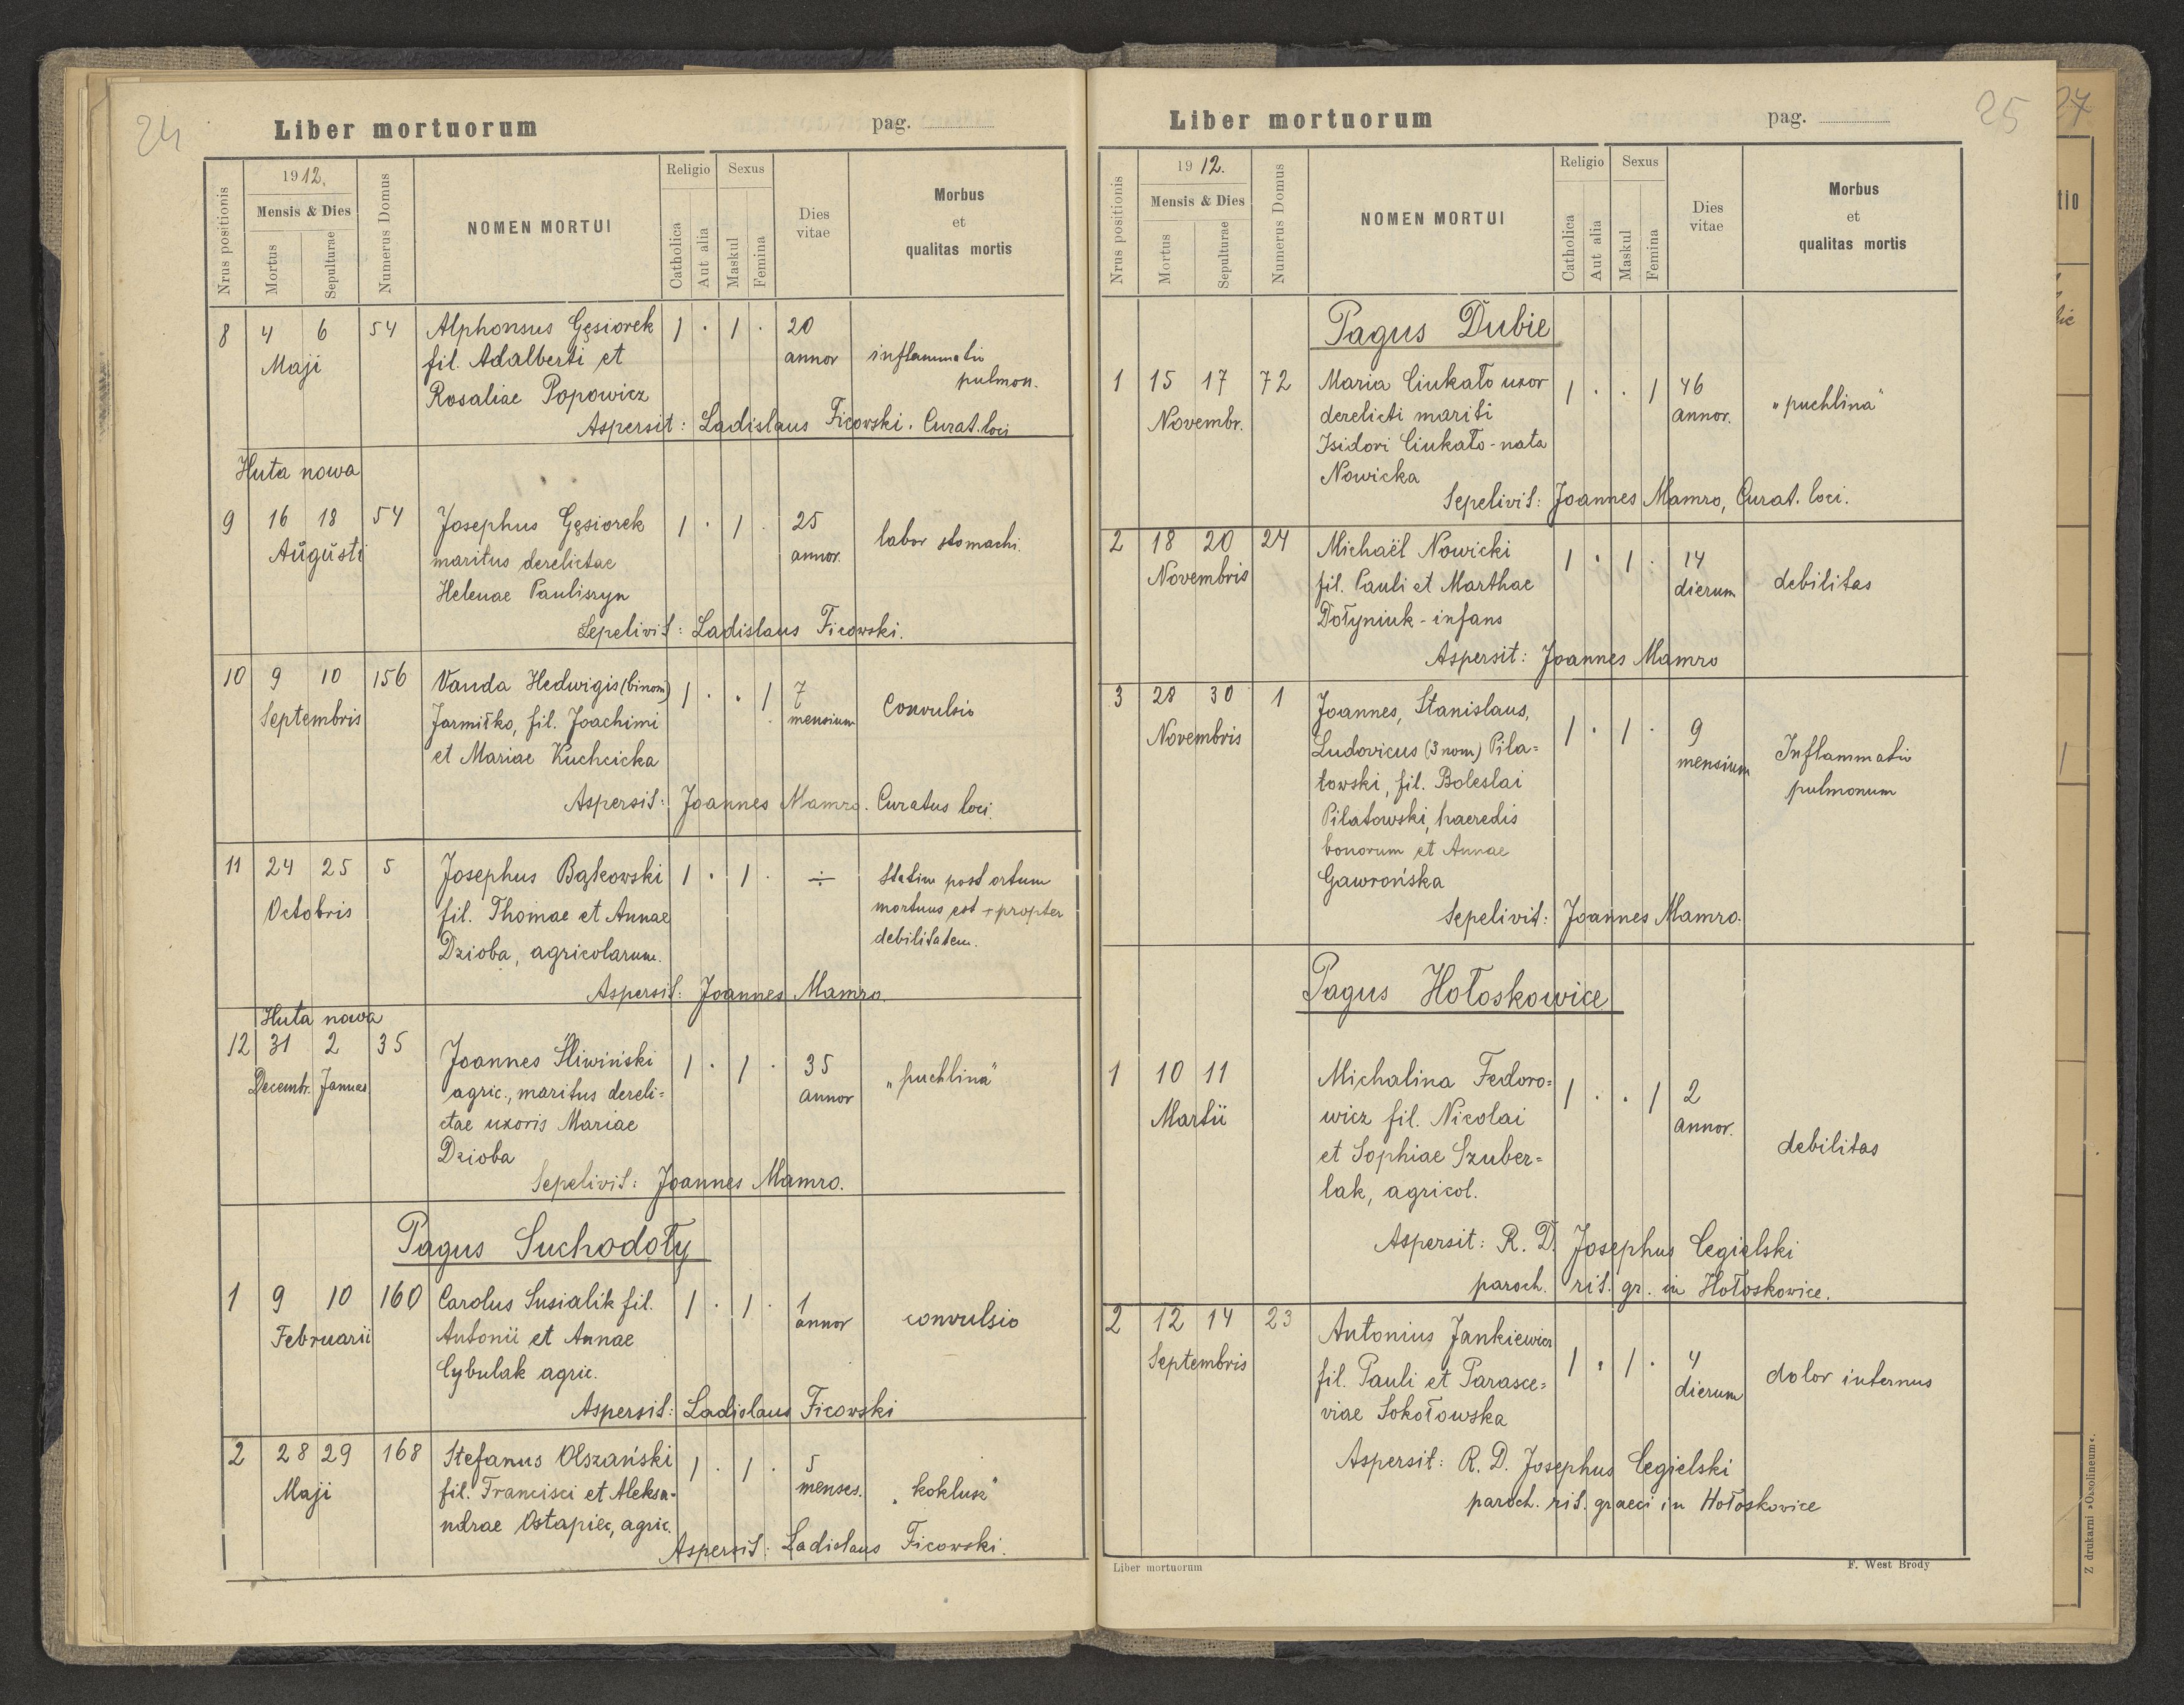 24
Liber mortuorum pag.
Nrus positionis
1912.
Mensis & Dies
Mortus
Sepulturae
Numerus Domus
NOMEN MORTUI
Religio
Catholica
Aut alia
Sexus
Maskul
Femina
Dies
vitae
Morbus
et
qualitas mortis
8 4 6 54 Alphonsus Gęsiorek 1 · 1 · 20
Maji fil. Adalberti et annor inflammatio
Rosaliae Popowicz pulmon.
Aspersit: Ladislaus Ficowski. Curat. loci
Huta nowa
9 16 18 54 Josephus Gęsiorek 1 · 1 · 25 labor stomachi.
Augusti maritus derelictae annor.
Helenae Pauliszyn
Sepelivit: Ladislaus Ficowski.
10 9 10 156 Vanda Hedwigis (binom) 1 · · 1 7 Convulsio
Septembris Jarmiłko, fil. Joachimi mensium
et Mariae Kuchcicka
Aspersit: Joannes Mamro. Curatus loci.
11 24 25 5 Josephus Bąkowski 1 · 1 · ÷ statim post ortum
Octobris fil. Thomae et Annae mortuus est + propter
Dzioba, agricolarum. debilitatem.
Aspersit: Joannes Mamro.
Huta nowa
12 31 2 35 Joannes Śliwiński 1 · 1 · 35 „puchlina"
Decembr. Januar. agric., maritus dereli= annor
ctae uxoris Mariae
Dzioba
Sepelivit: Joannes Mamro.
Pagus Suchodoły
1 9 10 160 Carolus Susialik fil. 1 · 1 · 1 convulsio
Februarii Antonii et Annae annor
Cybulak agric.
Aspersit: Ladislaus Ficowski
2 28 29 168 Stefanus Olszański 1 · 1 · 5
Maji fil. Francisci et Aleksa- menses. „koklusz"
ndrae Ostapiec, agric.
Aspersit: Ladislaus Ficowski.
25
Liber mortuorum pag.
Nrus positionis
1912.
Mensis & Dies
Mortus
Sepulturae
Numerus Domus
NOMEN MORTUI
Religio
Catholica
Aut alia
Sexus
Maskul
Femina
Dies
vitae
Morbus
et
qualitas mortis
Pagus Dubie
1 15 17 72 Maria Ciukało uxor 1 · · 1 46 „puchlina"
Novembr. derelicti mariti annor.
Isidori Ciukało - nata
Nowicka
Sepelivit: Joannes Mamro, Curat. loci.
2 18 20 24 Michaël Nowicki 1 · 1 · 14
Novembris fil. Pauli et Marthae dierum debilitas
Dołyniuk - infans
Aspersit: Joannes Mamro
3 28 30 1 Joannes, Stanislaus,
Novembris Ludovicus (3 nom) Pila= 1 · 1 · 9 Inflammatio
towski, fil. Boleslai mensium pulmonum
Pilatowski, haeredis
bonorum et Annae
Gawrońska
Sepelivit: Joannes Mamro.
Pagus Hołoskowice
1 10 11 Michalina Fedoro= 1 · · 1 2
Martii wicz fil. Nicolai annor.
et Sophiae Szuber= debilitas
lak, agricol.
Aspersit: R. D. Josephus Cegielski
paroch. rit. gr. in Hołoskowice.
2 12 14 23 Antonius Jankiewicz
Septembris fil. Pauli et Parasce= 1 · 1 · 4 dolor internus
viae Sokołowska dierum
Aspersit: R. D. Josephus Cegielski
paroch. rit. graeci in Hołoskowice
Liber mortuorum F. West Brody
27
tio
Z drukarni »Ossolineum«.